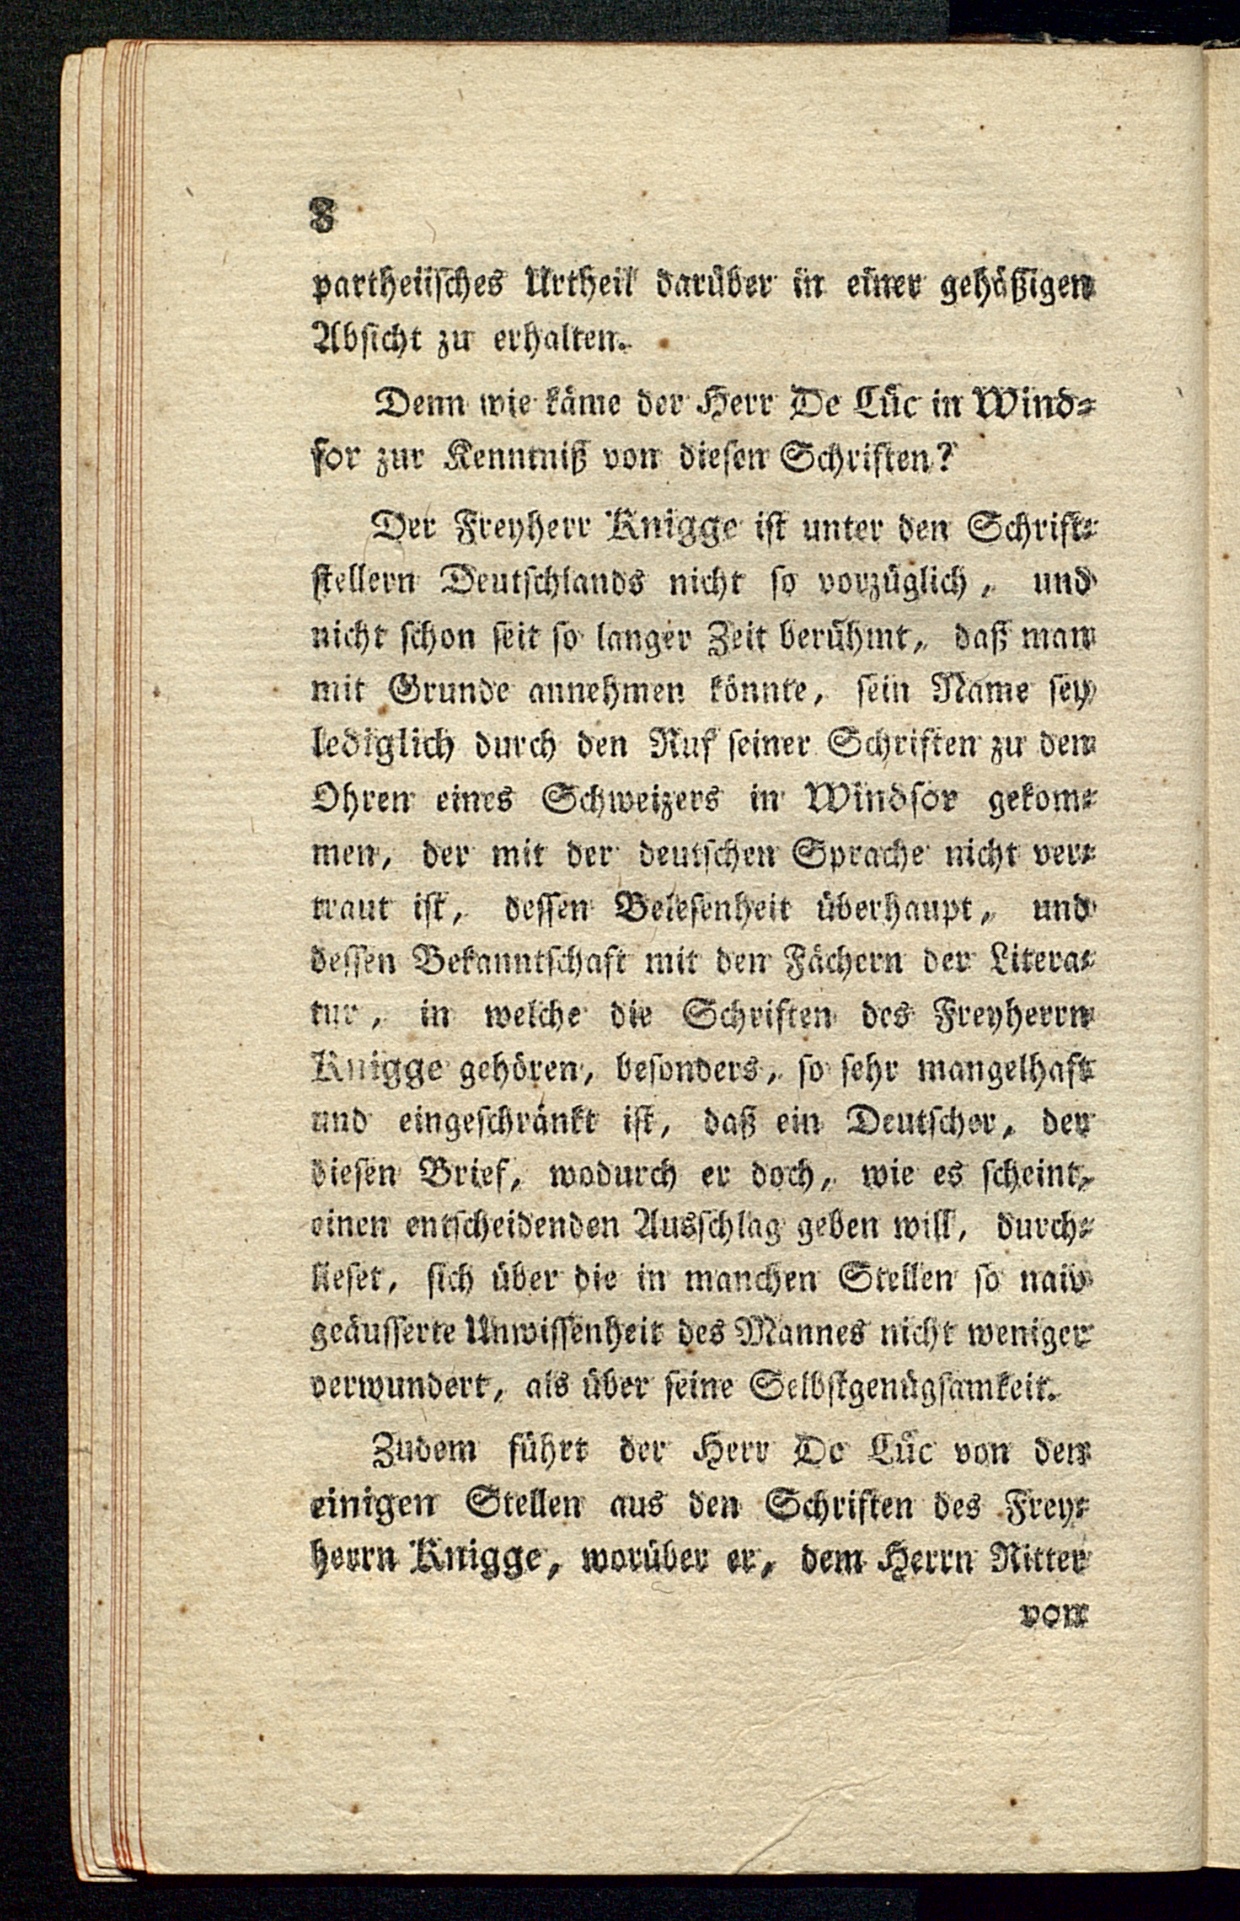 8
partheiisches Urtheil darüber in einer gehäßigen
Absicht zu erhalten.
Denn wie käme der Herr De Lüc in Wind-
sor zur Kenntniß von diesen Schriften?
Der Freyherr Knigge ist unter den Schrift-
stellern Deutschlands nicht so vorzüglich, und
nicht schon seit so langer Zeit berühmt, daß man
mit Grunde annehmen könnte, sein Name sey
lediglich durch den Ruf seiner Schriften zu den
Ohren eines Schweizers in Windsor gekom-
men, der mit der deutschen Sprache nicht ver-
traut ist, dessen Belesenheit überhaupt, und
dessen Bekanntschaft mit den Fächern der Litera-
tur, in welche die Schriften des Freyherrn
Knigge gehören, besonders, so sehr mangelhaft
und eingeschränkt ist, daß ein Deutscher, der
diesen Brief, wodurch er doch, wie es scheint,
einen entscheidenden Ausschlag geben will, durch-
lieset, sich über die in manchen Stellen so naiv
geäusserte Unwissenheit des Mannes nicht weniger
verwundert, als über seine Selbstgenügsamkeit.
Zudem führt der Herr De Lüc von den
einigen Stellen aus den Schriften des Frey-
herrn Knigge, worüber er, dem Herrn Ritter
von